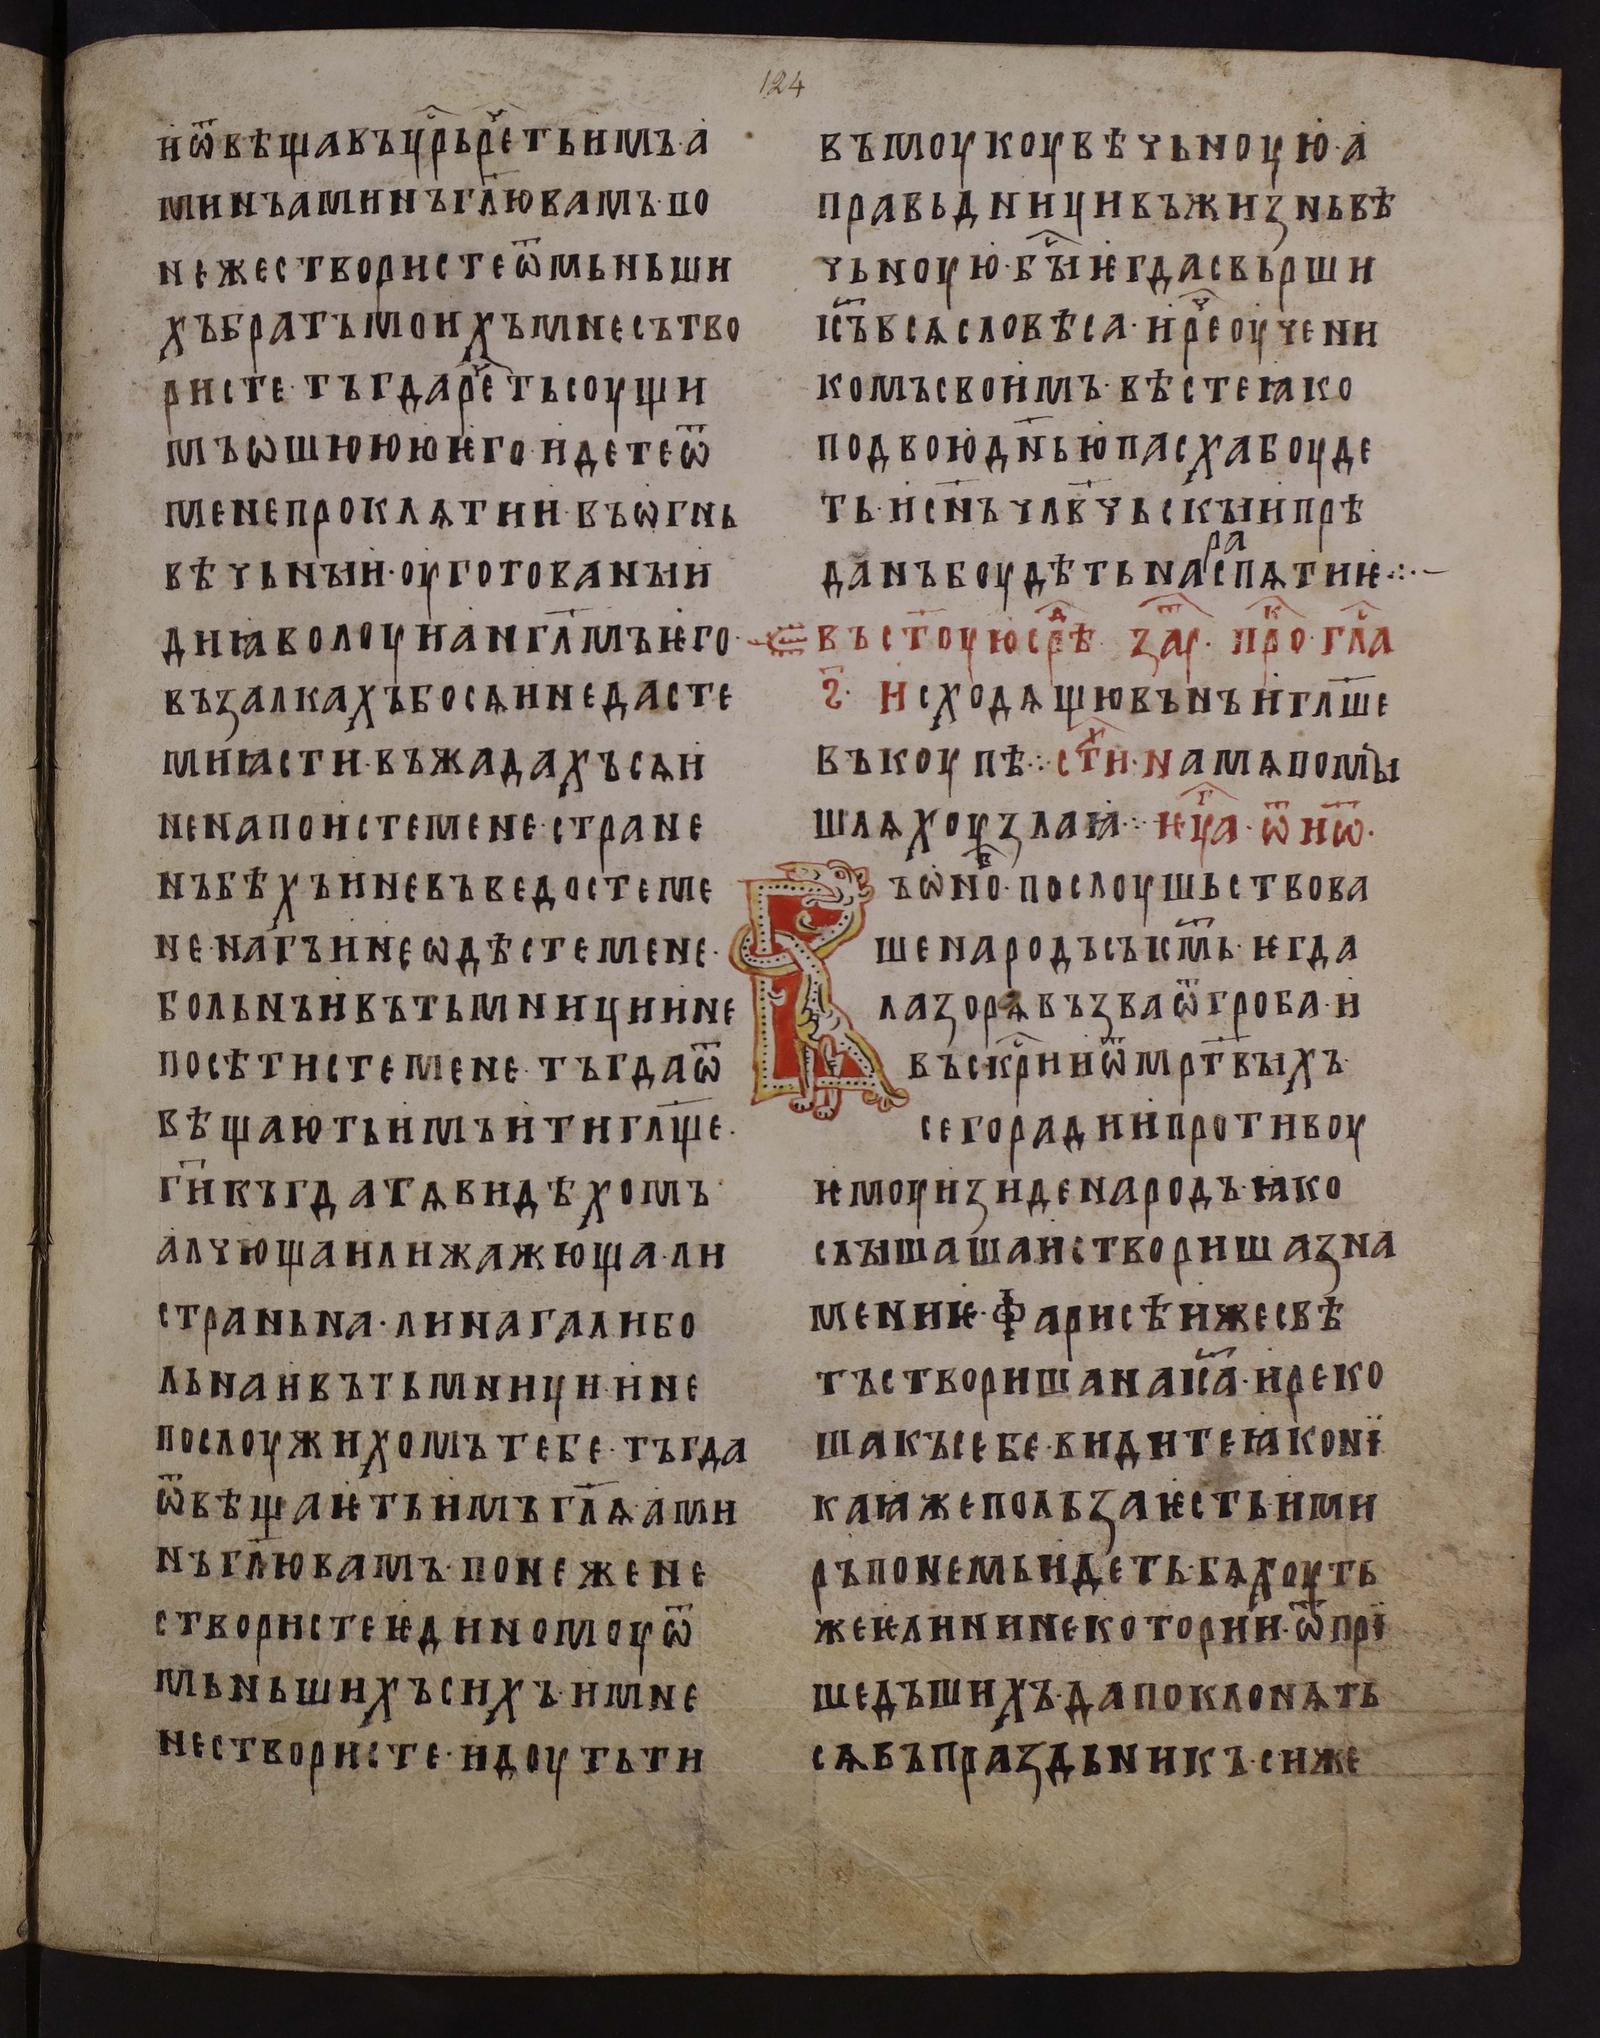 124
и ѿвѣщавъ цр҃ь рⷱ҇еть имъ· а
минъ аминъ гл҃ю вамъ· по
неже створисте ѿ мьньши
хъ братъ моихъ мне сътво
ристе· тъгда рⷱ҇еть соущи
мъ ѡшююю ѥго· идете ѿ
мене проклѧтии· въ ѡгнь
вѣчьнꙑи· оуготованꙑи
диꙗволоу и анг҃лмъ ѥго·
възалкахъ бо сѧ и не дасте
ми ꙗсти· въжадахъ сѧ и
не напоисте мене· стране
нъ бѣхъ и не въведосте ме
не· нагъ и не ѡдѣсте мене·
больнъ и въ тьмници и не
посѣтисте мене· тъгда ѿ
вѣщають имъ и ти гл҃ще·
г҃и къгда тѧ видѣхомъ
алчюща или жажюща· ли
страньна· ли нага ли бо
льна и въ тьмници· и не
послоужихомъ тебе· тъгда
ѿвѣщаѥть имъ гл҃ѧ ами
нъ гл҃ю вамъ· понеже не
створисте ѥдиномоу ѿ
мьньшихъ сихъ· и мне
не створисте· идоуть ти
въ моукоу вѣчьноую· а
правьдници въ жизнь вѣ
чьноую· бⷭ҇ꙑ ѥгда свьрши
і҃съ всѧ словѣса· и рⷱ҇е оучени
комъ своимъ· вѣсте ꙗко
по двою дн҃ью пасха боуде
ть· и сн҃ъ чл҃вчьскꙑи прѣ
данъ боудѣть на распѧтиѥ·:·—
Въ ст҃оую срⷣѣ· заⷹ҇· прⷪ҇к· гла
ѕ҃· Исходѧщю вънъ и гл҃ше
въкоупѣ·:· стⷯи· на мѧ помꙑ
шлѧхоу злаꙗ·:· ѥⷢ҇ца· ѿ иѡ·
Въ ѡнⷪ҇· послоушьствова
ше народъ сы с нимь· ѥгда
лазорѧ възва ѿ гроба· и
въскрⷭ҇и и ѿ мр҃твꙑхъ·
сего ради и противоу
ѥмоу изиде народъ· ꙗко
слꙑшаша и створиша зна
мениѥ· фарисѣи же свѣ
тъ створиша на і҃са· и реко
ша къ себе· видите ꙗко нї
каꙗже польза ѥсть· и ми
ръ по немь идеть· бѧхоуть
же ѥлини некотории· ѿ прї
шедъшихъ· да поклонѧть
сѧ въ праздьникъ· си же